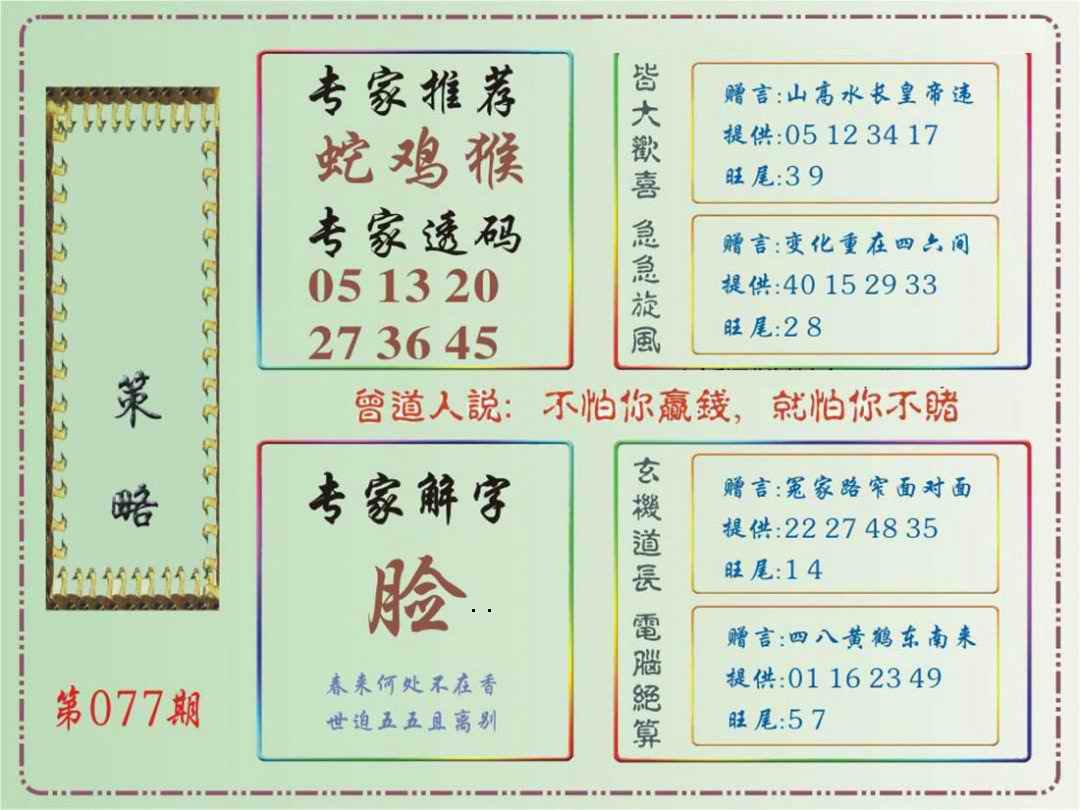 策略
第077期
专家推荐
蛇鸡猴
专家透码
05 13 20
27 36 45
皆大歡喜
赠言:山高水长皇帝违
提供:05 12 34 17
旺尾:3 9
急急旋風
赠言:变化重在四六间
提供:40 15 29 33
旺尾:2 8
曾道人説: 不怕你贏錢, 就怕你不賭
专家解字
脸
春来何处不在香
世迫五五且离别
玄機道長
赠言:冤家路窄面对面
提供:22 27 48 35
旺尾:1 4
電腦絕算
赠言:四八黄鹤东南来
提供:01 16 23 49
旺尾:5 7